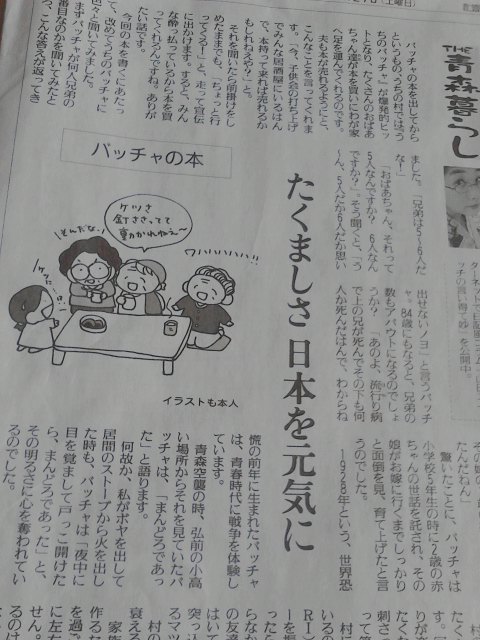 (土曜日)
THE
青森暮らし
ターネット
ッチの買い得て妙」を公開中。
バッチャの本を出してから
というもの、うちの村では「う
ちのバッチャ」が爆発的ヒッ
トとなり、たくさんのおばあ
ちゃん達が本を買いにわが家
へ足を運んでくれるのです。
夫も本が売れるようにと、
こんなことを言ってくれま
す。「今、子供会の打ち上げ
でみんな居酒屋にいるはん
で、本持って来れば売れるか
もしれねえや?」と。
それを聞いたら前掛けをし
めたままでも、「ちょっと行
ってくる!」と、走って宣伝
に出かけます。すると、みん
な酔っ払っているから本を買
ってくれるんですね。ありが
たい話です。
今回の本を書くにあたっ
て、改めてうちのバッチャに
色々と聞いてみました。
まずバッチャが何人兄弟の
番目なのかを聞いてみたと
ろ、こんな答えが返ってき
ました。「兄弟は5〜6人だ
な!」
「おばあちゃん、それって
5人なんですか? 6人なん
ですか?」そう聞くと、「う
〜ん、5人だか6人だか思い
出せないノヨ」と言うバッチ
ャ。84歳にもなると、兄弟の
数もアバウトになるのでしょ
うか? 「あのよ、流行り病
で上の兄が死んでその下も何
人か死んだはんで、わからね
バッチャの本
たくましさ 日本を元気に
ケツさ
釘ささってて
動かれねえ〜
そんだな!
ワハハハハハ!!
イラストも本人
その妹
たんだねん」
驚いたことに、バッチャは
小学校5年生の時に2歳の赤
ちゃんの世話を託され、その
娘がお嫁に行くまでしっかり
と面倒を見、育て上げたと言
うのでした。
1928年という、世界恐
慌の前年に生まれたバッチャ
は、青春時代に戦争を体験し
ています。
青森空襲の時、弘前の小高
い場所からそれを見ていたバ
ッチャは、「まんどろであっ
た」と語ります。
何故か、私がボヤを出して
居間のストーブから火を出し
た時も、バッチャは「夜中に
目を覚まして戸っこ開けた
ら、まんどろであった」と、
その明るさに心を奪われてい
るのでした。